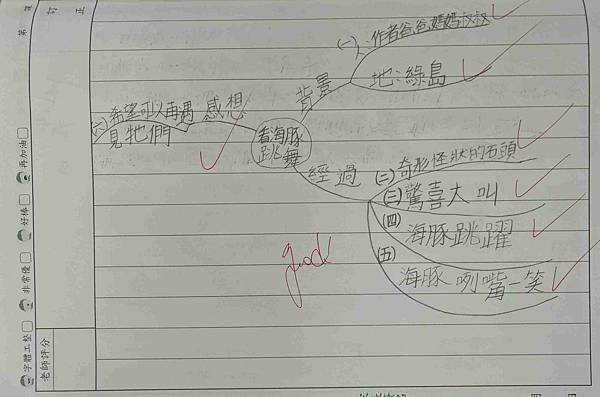 看海豚
跳舞
背景
(一)人:作者爸爸媽媽叔叔
地:綠島
經過
(二)奇形怪狀的石頭
(三)驚喜大叫
(四)
海豚跳躍
(五)
海豚咧嘴一笑
感想
(六)希望可以再遇
見牠們
good
訂正
老師評分
字體工整
非常優
好棒
再加油
第